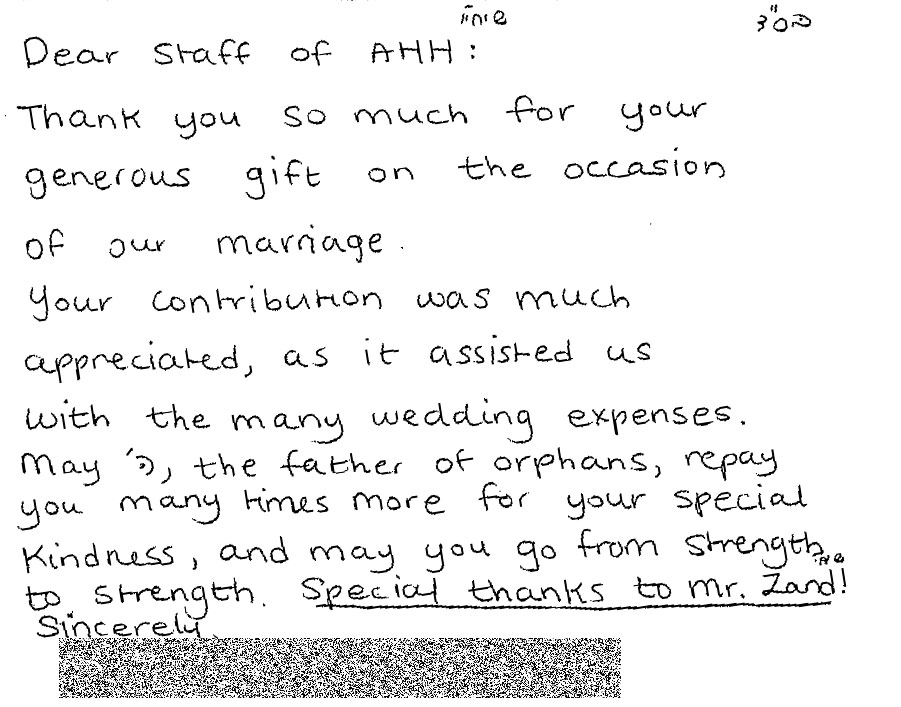 בס"ד
Dear Staff of AHH:
Thank you so much for your
generous gift on the occasion
of our marriage.
Your contribution was much
appreciated, as it assisted us
with the many wedding expenses.
May ה', the father of orphans, repay
you many times more for your special
Kindness, and may you go from strength
to strength. Special thanks to Mr. Zand!
Sincerely,